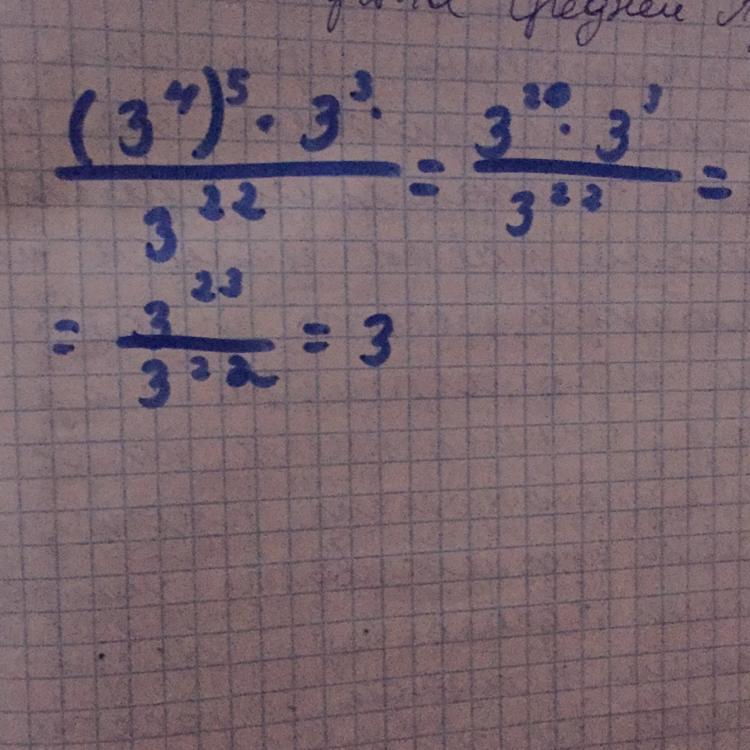 средней
(3^4)^5 · 3^3 · / 3^22 = 3^20 · 3^3 / 3^22 =
= 3^23 / 3^22 = 3